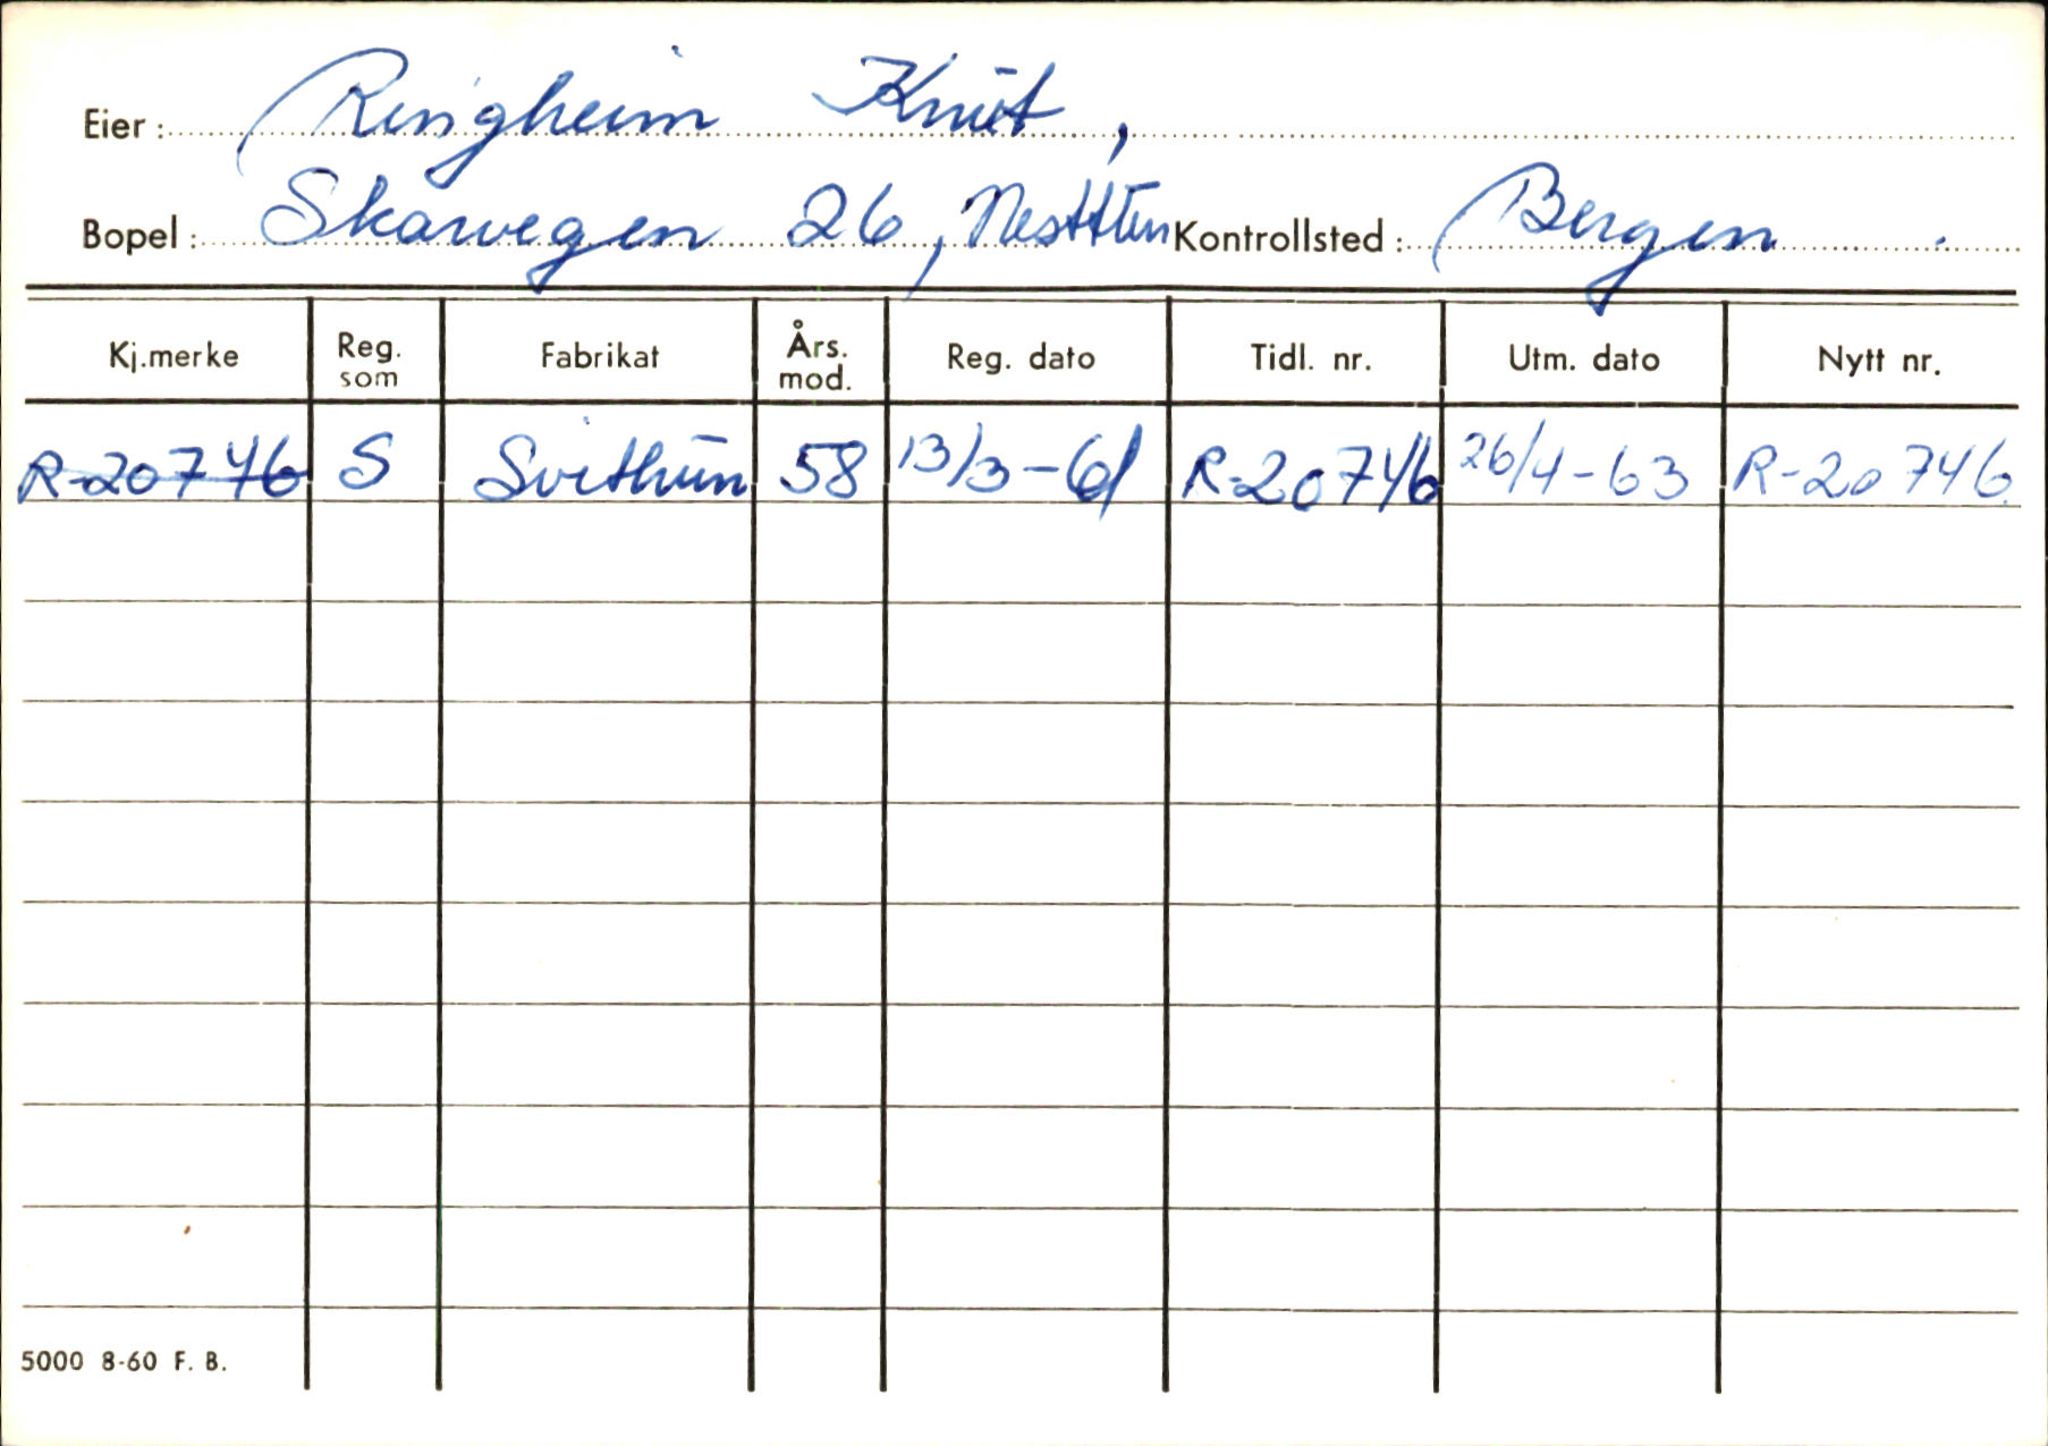 Eier: Ringheim Knut,
Bopel: Skarvegen 26, Nesttun Kontrollsted: Bergen
Kj.merke Reg. som Fabrikat Års. mod. Reg. dato Tidl. nr. Utm. dato Nytt nr.
R-20746 S Svithun 58 13/3-61 R-20746 26/4-63 R-20746
5000 8-60 F. B.